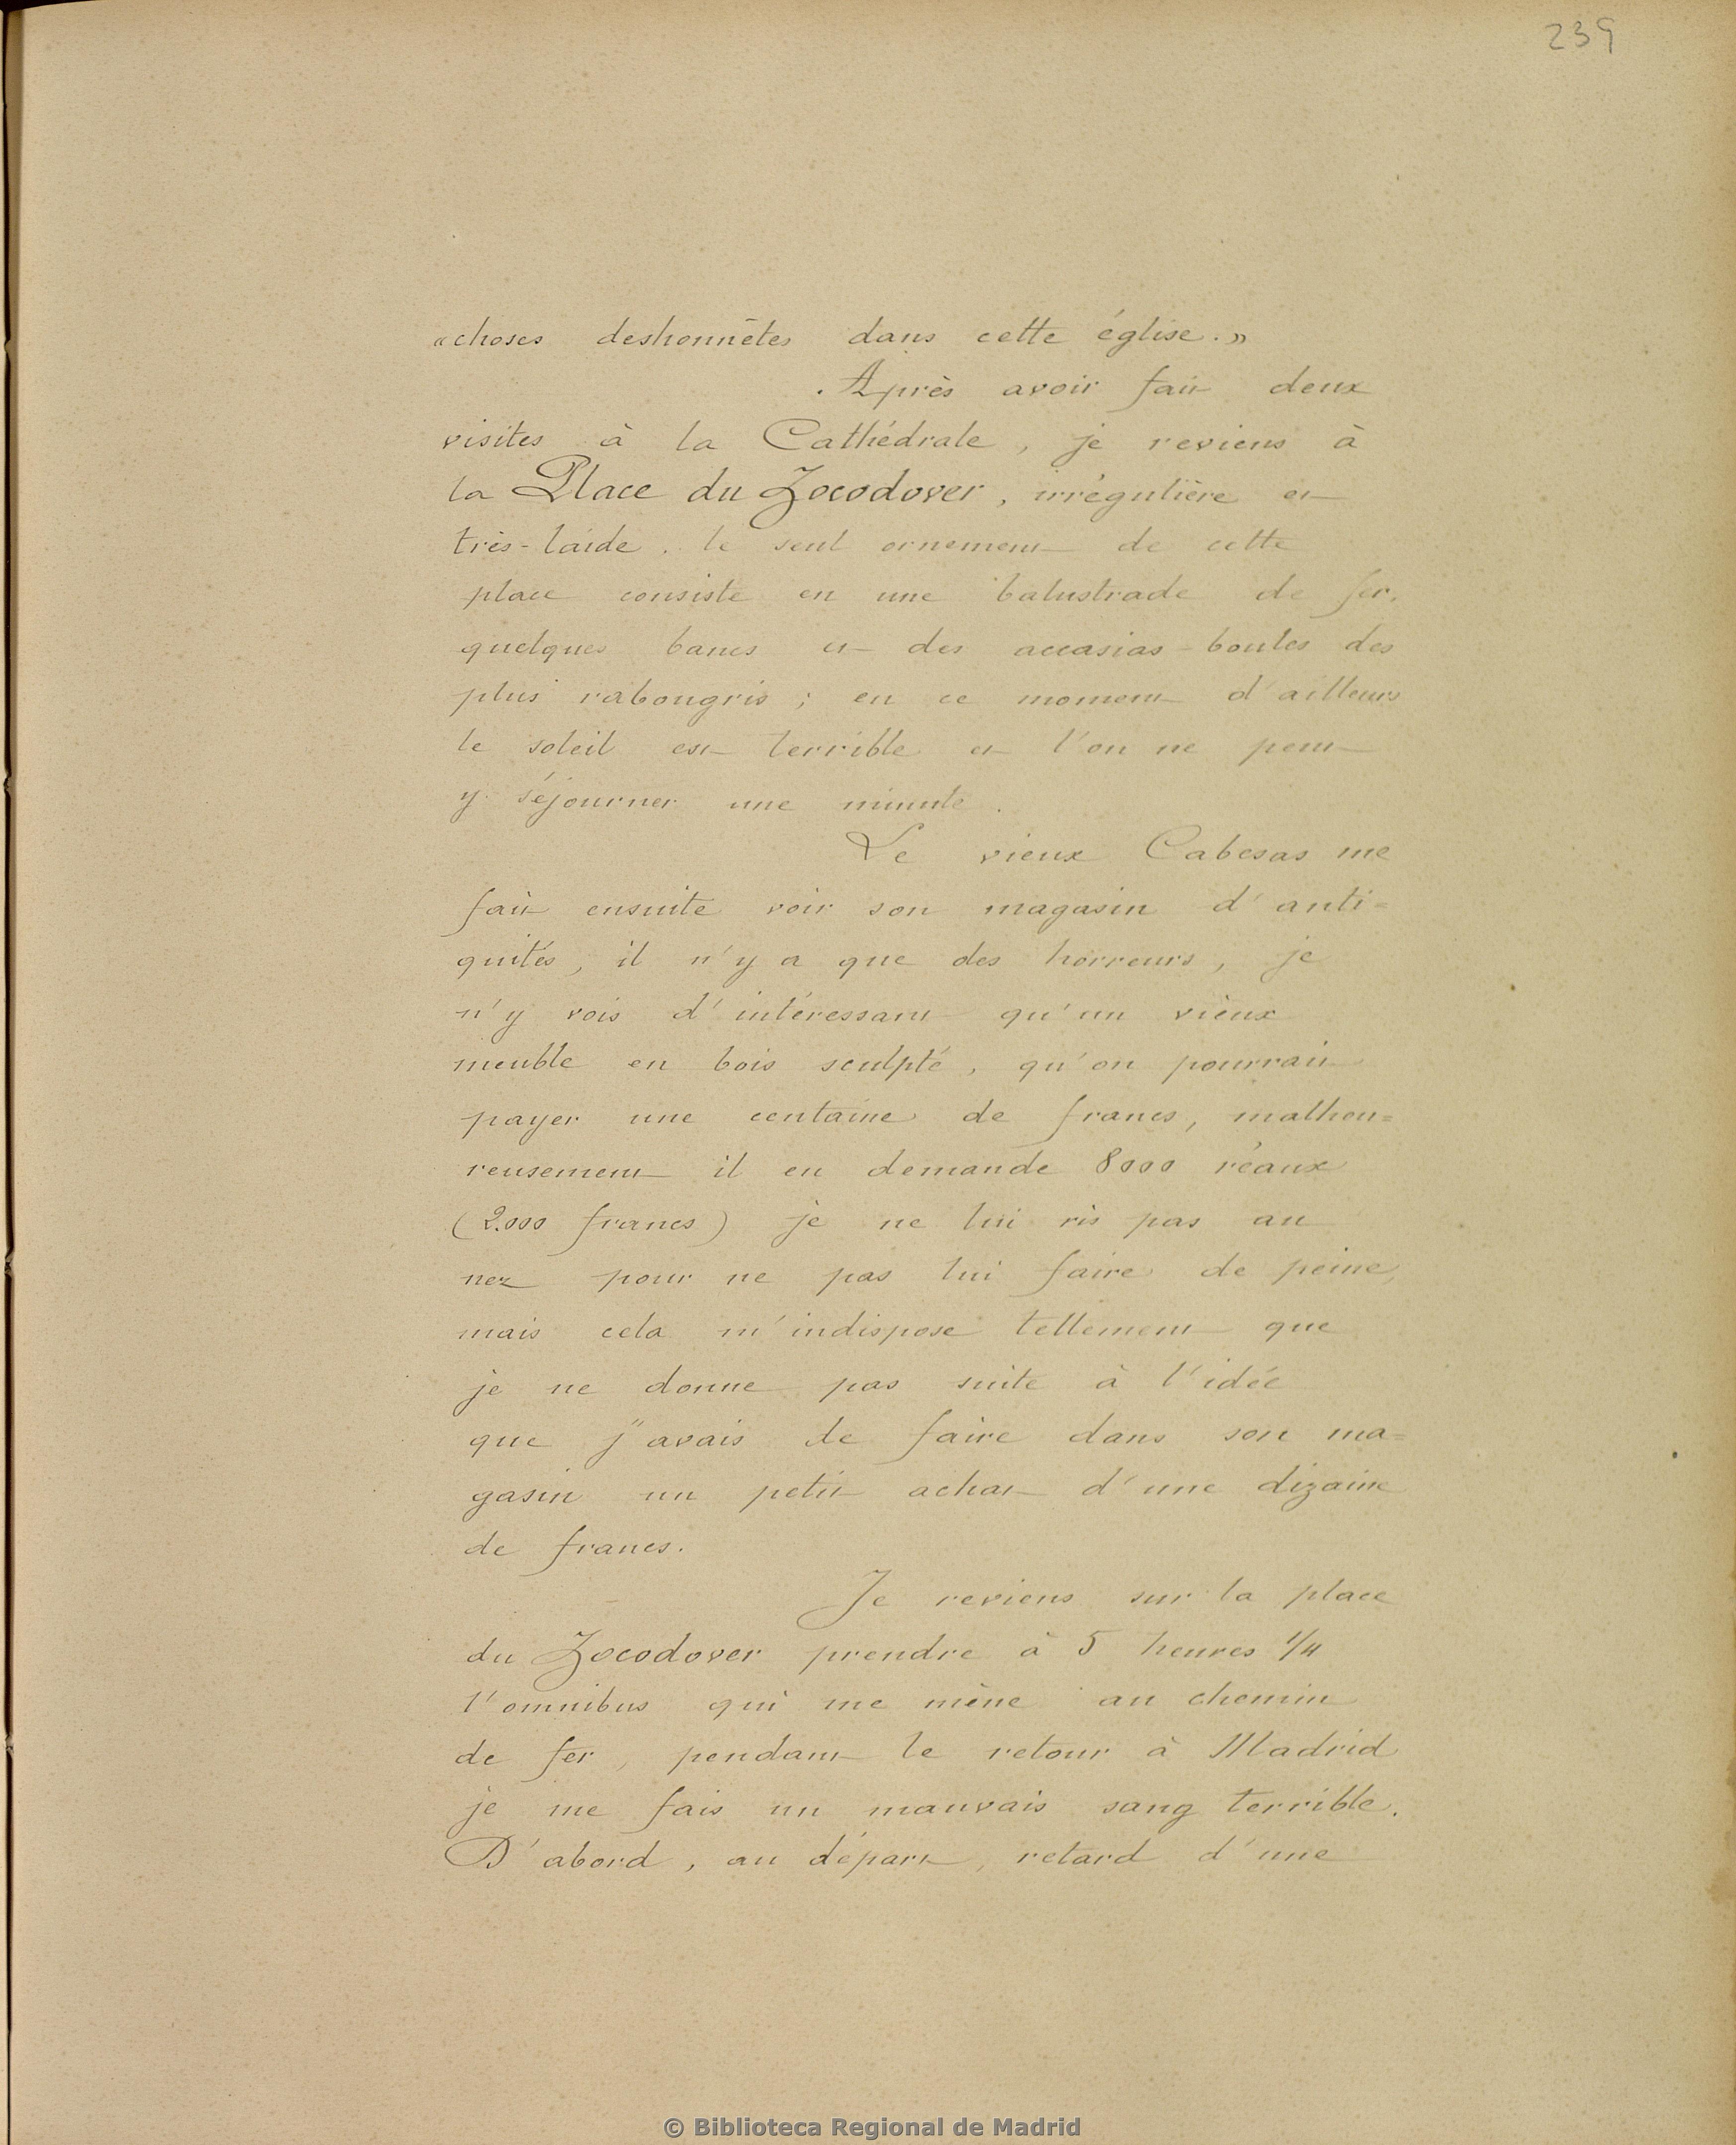 239
«choses deshonnêtes dans cette église.»
Après avoir fait deux
visites à la Cathédrale, je reviens à
la Place du Zocodover, irrégulière et
très-laide. le seul ornement de cette
place consiste en une balustrade de fer,
quelques bancs et des accasias-boules des
plus rabougris; en ce moment d'ailleurs
le soleil est terrible et l'on ne peut
y séjourner une minute.
Le vieux Cabesas me
fait ensuite voir son magasin d'anti=
quités, il n'y a que des horreurs, je
n'y vois d'intéressant qu'un vieux
meuble en bois sculpté, qu'on pourrait
payer une centaine de francs, malheu=
reusement il en demande 8000 réaux
(2.000 francs) je ne lui ris pas au
nez pour ne pas lui faire de peine,
mais cela m'indispose tellement que
je ne donne pas suite à l'idée
que j'avais de faire dans son ma=
gasin un petit achat d'une dizaine
de francs.
Je reviens sur la place
du Zocodover prendre à 5 heures 1/4
l'omnibus qui me mène au chemin
de fer, pendant le retour à Madrid
je me fais un mauvais sang terrible.
D'abord, au départ, retard d'une
© Biblioteca Regional de Madrid